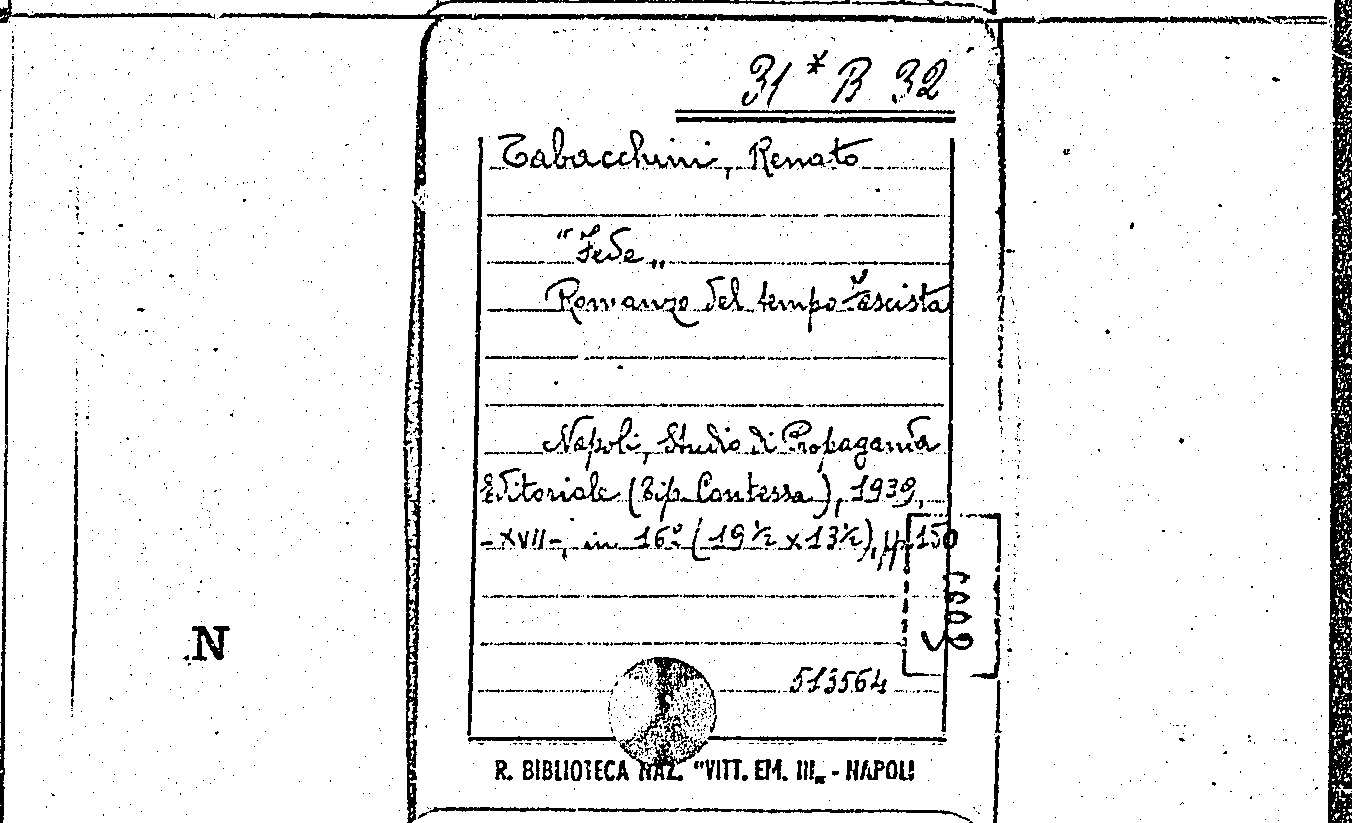 31* B 32
Tabacchini, Renato
"Fede„
Romanzo del tempo fascista
Napoli, Studio di Propaganda
Editoriale (Tip. Contessa), 1939,
-XVII-, in 16° (19½ x 13½), pp. 150
N
513564
R. BIBLIOTECA NAZ. "VITT. EM. III„ - NAPOLI